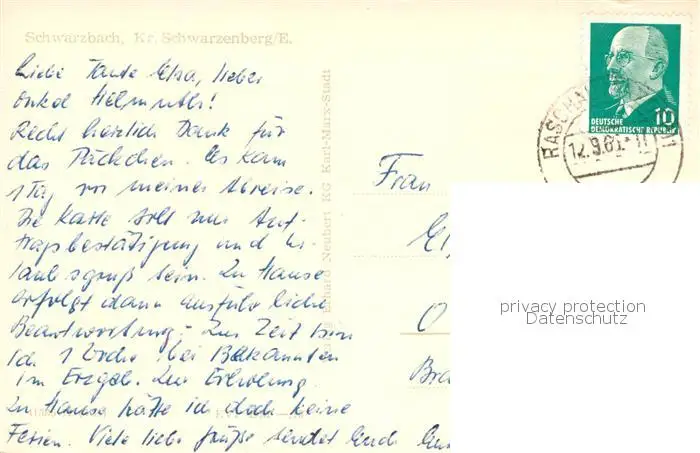 Schwarzbach, Kr. Schwarzenberg/E.
Liebe Tante Elsa, lieber
Onkel Hellmuth!
Recht herzlich Dank für
das Päckchen. Es kam
1 Tag vor meiner Abreise.
Die Karte soll nur Auf-
tragsbestätigung und Ur-
laubsgruß sein. Zu Hause
erfolgt dann ausführliche
Beantwortung. Zur Zeit bin
ich 1 Woche bei Bekannten
im Erzgeb. zur Erholung.
Zu Hause hätte ich doch keine
Ferien. Viele liebe Grüße sendet Euch
Erhard Neubert KG Karl-Marx-Stadt
DEUTSCHE
DEMOKRATISCHE REPUBLIK
10
12.9.61
Frau
El
O
Bra
privacy protection
Datenschutz